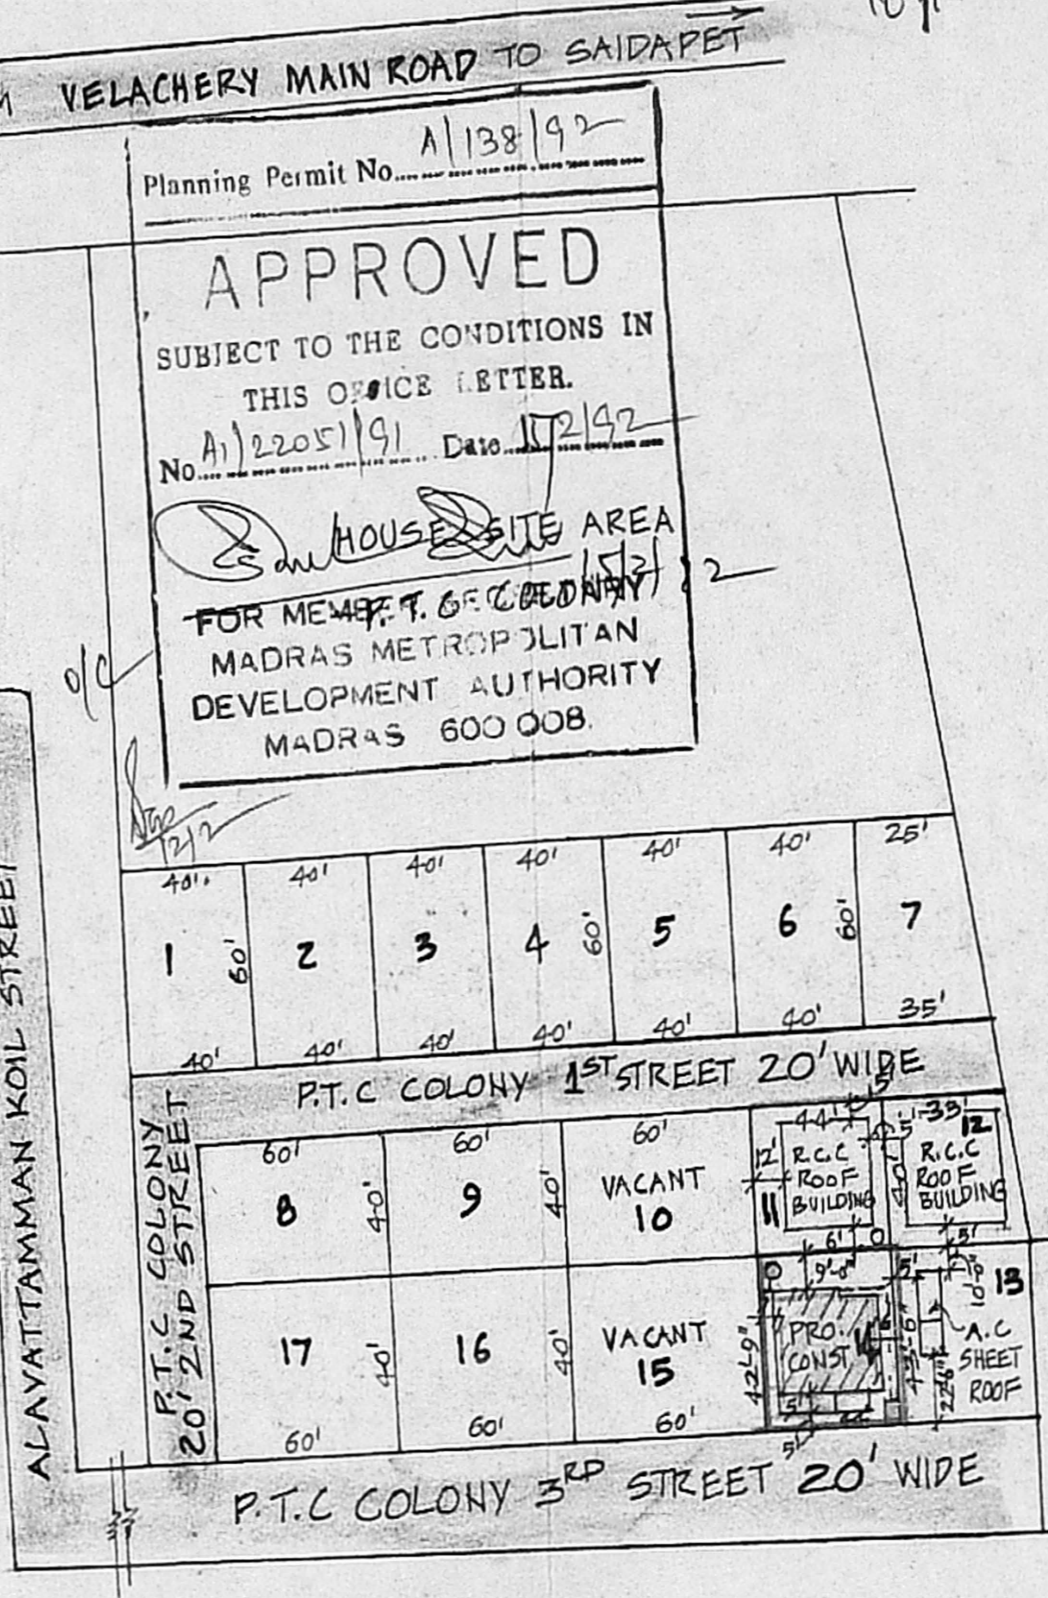 VELACHERY MAIN ROAD TO SAIDAPET
Planning Permit No. A/138/92
APPROVED
SUBJECT TO THE CONDITIONS IN
THIS OFFICE LETTER.
No. A1/22051/91 Date 15/2/92
HOUSE SITE AREA
P.T.C COLONY
FOR MEMBER SECRETARY
MADRAS METROPOLITAN
DEVELOPMENT AUTHORITY
MADRAS 600 008.
O/C
ALAVATTAMMAN KOIL STREET
40' 40' 40' 40' 40' 40' 25'
1 60' 2 3 4 60' 5 6 60' 7
40' 40' 40' 40' 40' 40' 35'
P.T.C COLONY 1ST STREET 20' WIDE
P.T.C COLONY
20' 2ND STREET
60' 60' 60' 44' 5' 33'
8 40' 9 40' VACANT
10
12' 11 R.C.C
ROOF
BUILDING
5' 40' 12 R.C.C
ROOF
BUILDING
6' 5'
9'-0" 5' 10'-0" 13
17 40' 16 40' VACANT
15
42'-9" PRO.
CONST 14 43'-6" 22'6" A.C
SHEET
ROOF
60' 60' 60' 5' 5'
P.T.C COLONY 3RD STREET 20' WIDE